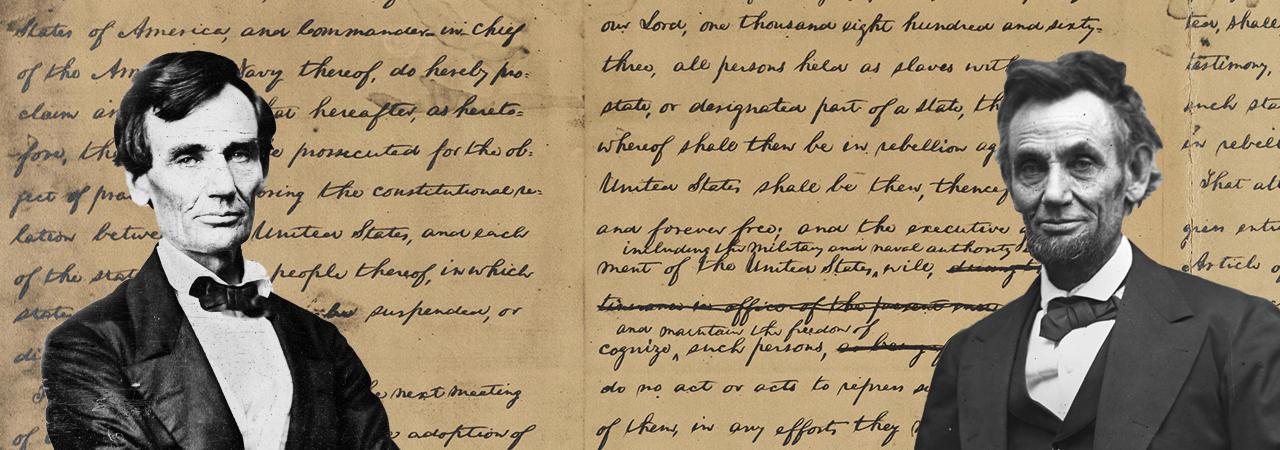 States of America, and Commander-in-Chief
of the Am Navy thereof, do hereby pro=
claim an at hereafter, as hereto=
fore, th e prossecuted for the ob=
ject of pra oring the constitutional re=
lation betwe United States, and each
of the stat people thereof, in which
states be suspended, or
di
e next meeting
of adoption of
our Lord, one thousand eight hundred and sixty-
three, all persons held as slaves with
state, or designated part of a state, th
whereof shall then be in rebellion ag
United States shall be then, thence
and forever free; and the executive
including the military and naval authority
ment of the United States, will,
tinuance in office of the present
and maintain the freedom of
cognize, such persons, as being
do no act or acts to repress
of them, in any efforts they
ted, shall
testimony,
such sta
in rebell
That att
gress enti
Article o